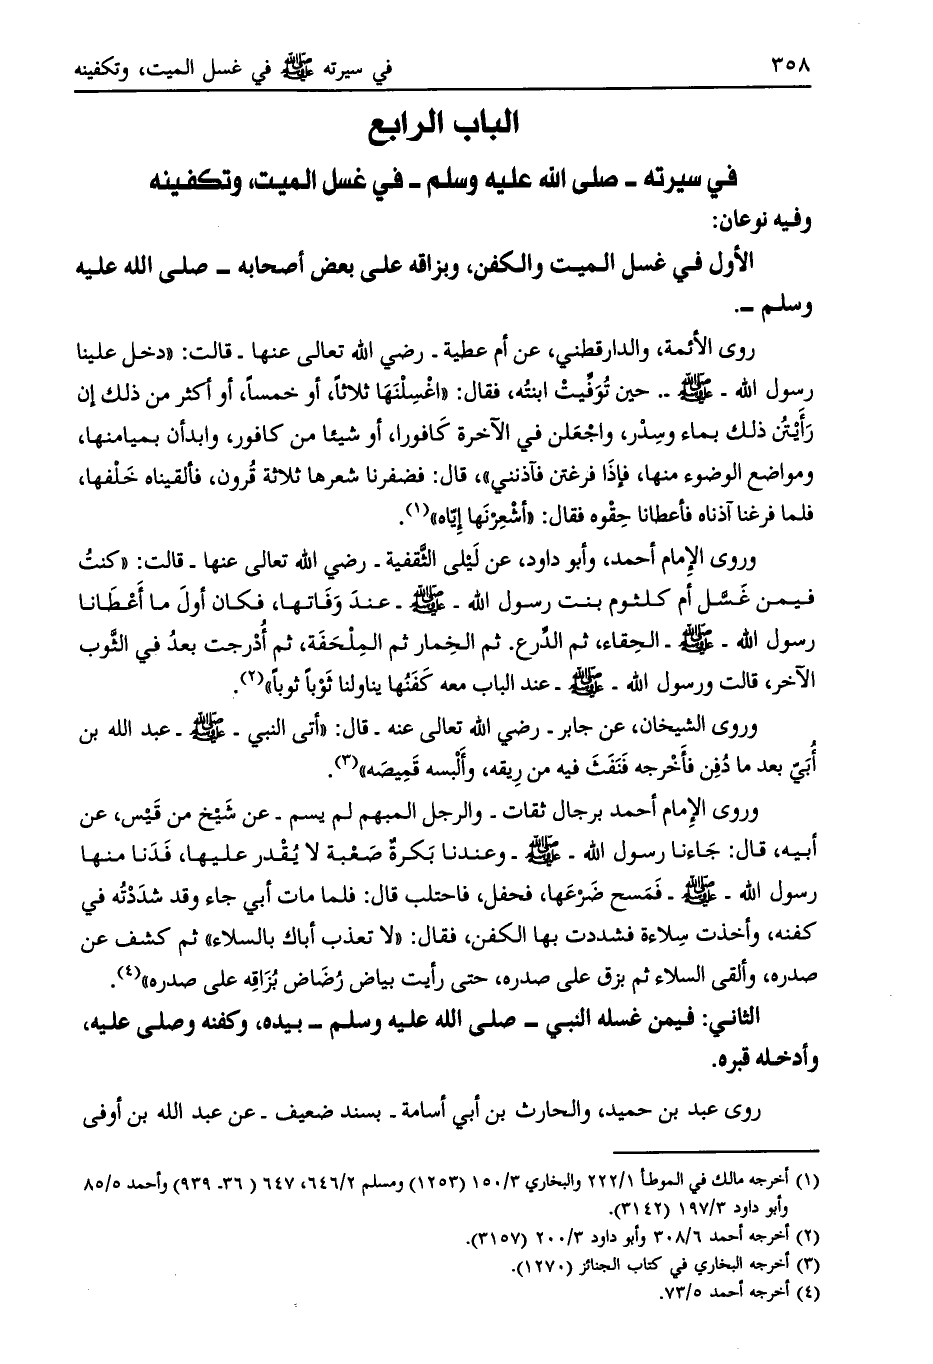 ٣٥٨
في سيرته ﷺ في غسل الميت، وتكفينه
الباب الرابع
في سيرته ـ صلى الله عليه وسلم ـ في غسل الميت، وتكفينه
وفيه نوعان:
الأول في غسل الميت والكفن، وبزاقه على بعض أصحابه ـ صلى الله عليه
وسلم ـ.
روى الأئمة، والدارقطني، عن أم عطية ـ رضي الله تعالى عنها ـ قالت: «دخل علينا
رسول الله ـ ﷺ .. حين تُوَفِّيتْ ابنته، فقال: «اغْسِلْنَهَا ثلاثاً، أو خمساً، أو أكثر من ذلك إن
رَأَيْتُن ذلك بماء وسِدْر، واجْعَلن في الآخرة كَافورا، أو شيئا من كافور، وابدأن بميامنها،
ومواضع الوضوء منها، فإذَا فرغتن فآذنني»، قال: فضفرنا شعرها ثلاثة قُرون، فألقيناه خَلْفها،
فلما فرغنا آذناه فأعطانا حِقْوه فقال: «أشْعِرْنَها إيّاه»(١).
وروى الإمام أحمد، وأبو داود، عن لَيْلى الثَّقفية ـ رضي الله تعالى عنها ـ قالت: «كنتُ
فيمن غَسَّل أم كلثوم بنت رسول الله ـ ﷺ ـ عندَ وَفَاتها، فكان أولَ ما أَعْطَانا
رسول الله ـ ﷺ ـ الحِقاء، ثم الدِّرع. ثم الخِمار ثم المِلْحَفَة، ثم أُدْرجت بعدُ في الثَّوب
الآخر، قالت ورسول الله ـ ﷺ ـ عند الباب معه كَفَنُها يناولنا ثَوْباً ثوباً»(٢).
وروى الشيخان، عن جابر ـ رضي الله تعالى عنه ـ قال: «أتى النبي ـ ﷺ ـ عبد الله بن
أُبَيّ بعد ما دُفِن فأَخْرجه فَنَفَثَ فيه من رِيقه، وأَلْبسه قَمِيصَه»(٣).
وروى الإمام أحمد برجال ثقات ـ والرجل المبهم لم يسم ـ عن شَيْخ من قَيْس، عن
أبيه، قال: جَاءنا رسول الله ـ ﷺ ـ وعندنا بَكرةٌ صَعْبة لا يُقْدر عليها، فَدَنا منها
رسول الله ـ ﷺ ـ فَمَسح ضَرْعَها، فحفل، فاحتلب قال: فلما مات أبي جاء وقد شدَدْتُه في
كفنه، وأخذت سِلاءة فشددت بها الكفن، فقال: «لا تعذب أباك بالسلاء» ثم كشف عن
صدره، وألقى السلاء ثم بزق على صدره، حتى رأيت بياض رُضَاض بُزَاقِه على صدره»(٤).
الثاني: فيمن غسله النبي ـ صلى الله عليه وسلم ـ بيده، وكفنه وصلى عليه،
وأدخله قبره.
روى عبد بن حميد، والحارث بن أبي أسامة ـ بسند ضعيف ـ عن عبد الله بن أوفى
(١) أخرجه مالك في الموطأ ٢٢٢/١ والبخاري ١٥٠/٣ (١٢٥٣) ومسلم ٦٤٦/٢، ٦٤٧ ( ٣٦ـ ٩٣٩) وأحمد ٨٥/٥
وأبو داود ١٩٧/٣ (٣١٤٢).
(٢) أخرجه أحمد ٣٠٨/٦ وأبو داود ٢٠٠/٣ (٣١٥٧).
(٣) أخرجه البخاري في كتاب الجنائز (١٢٧٠).
(٤) أخرجه أحمد ٧٣/٥.